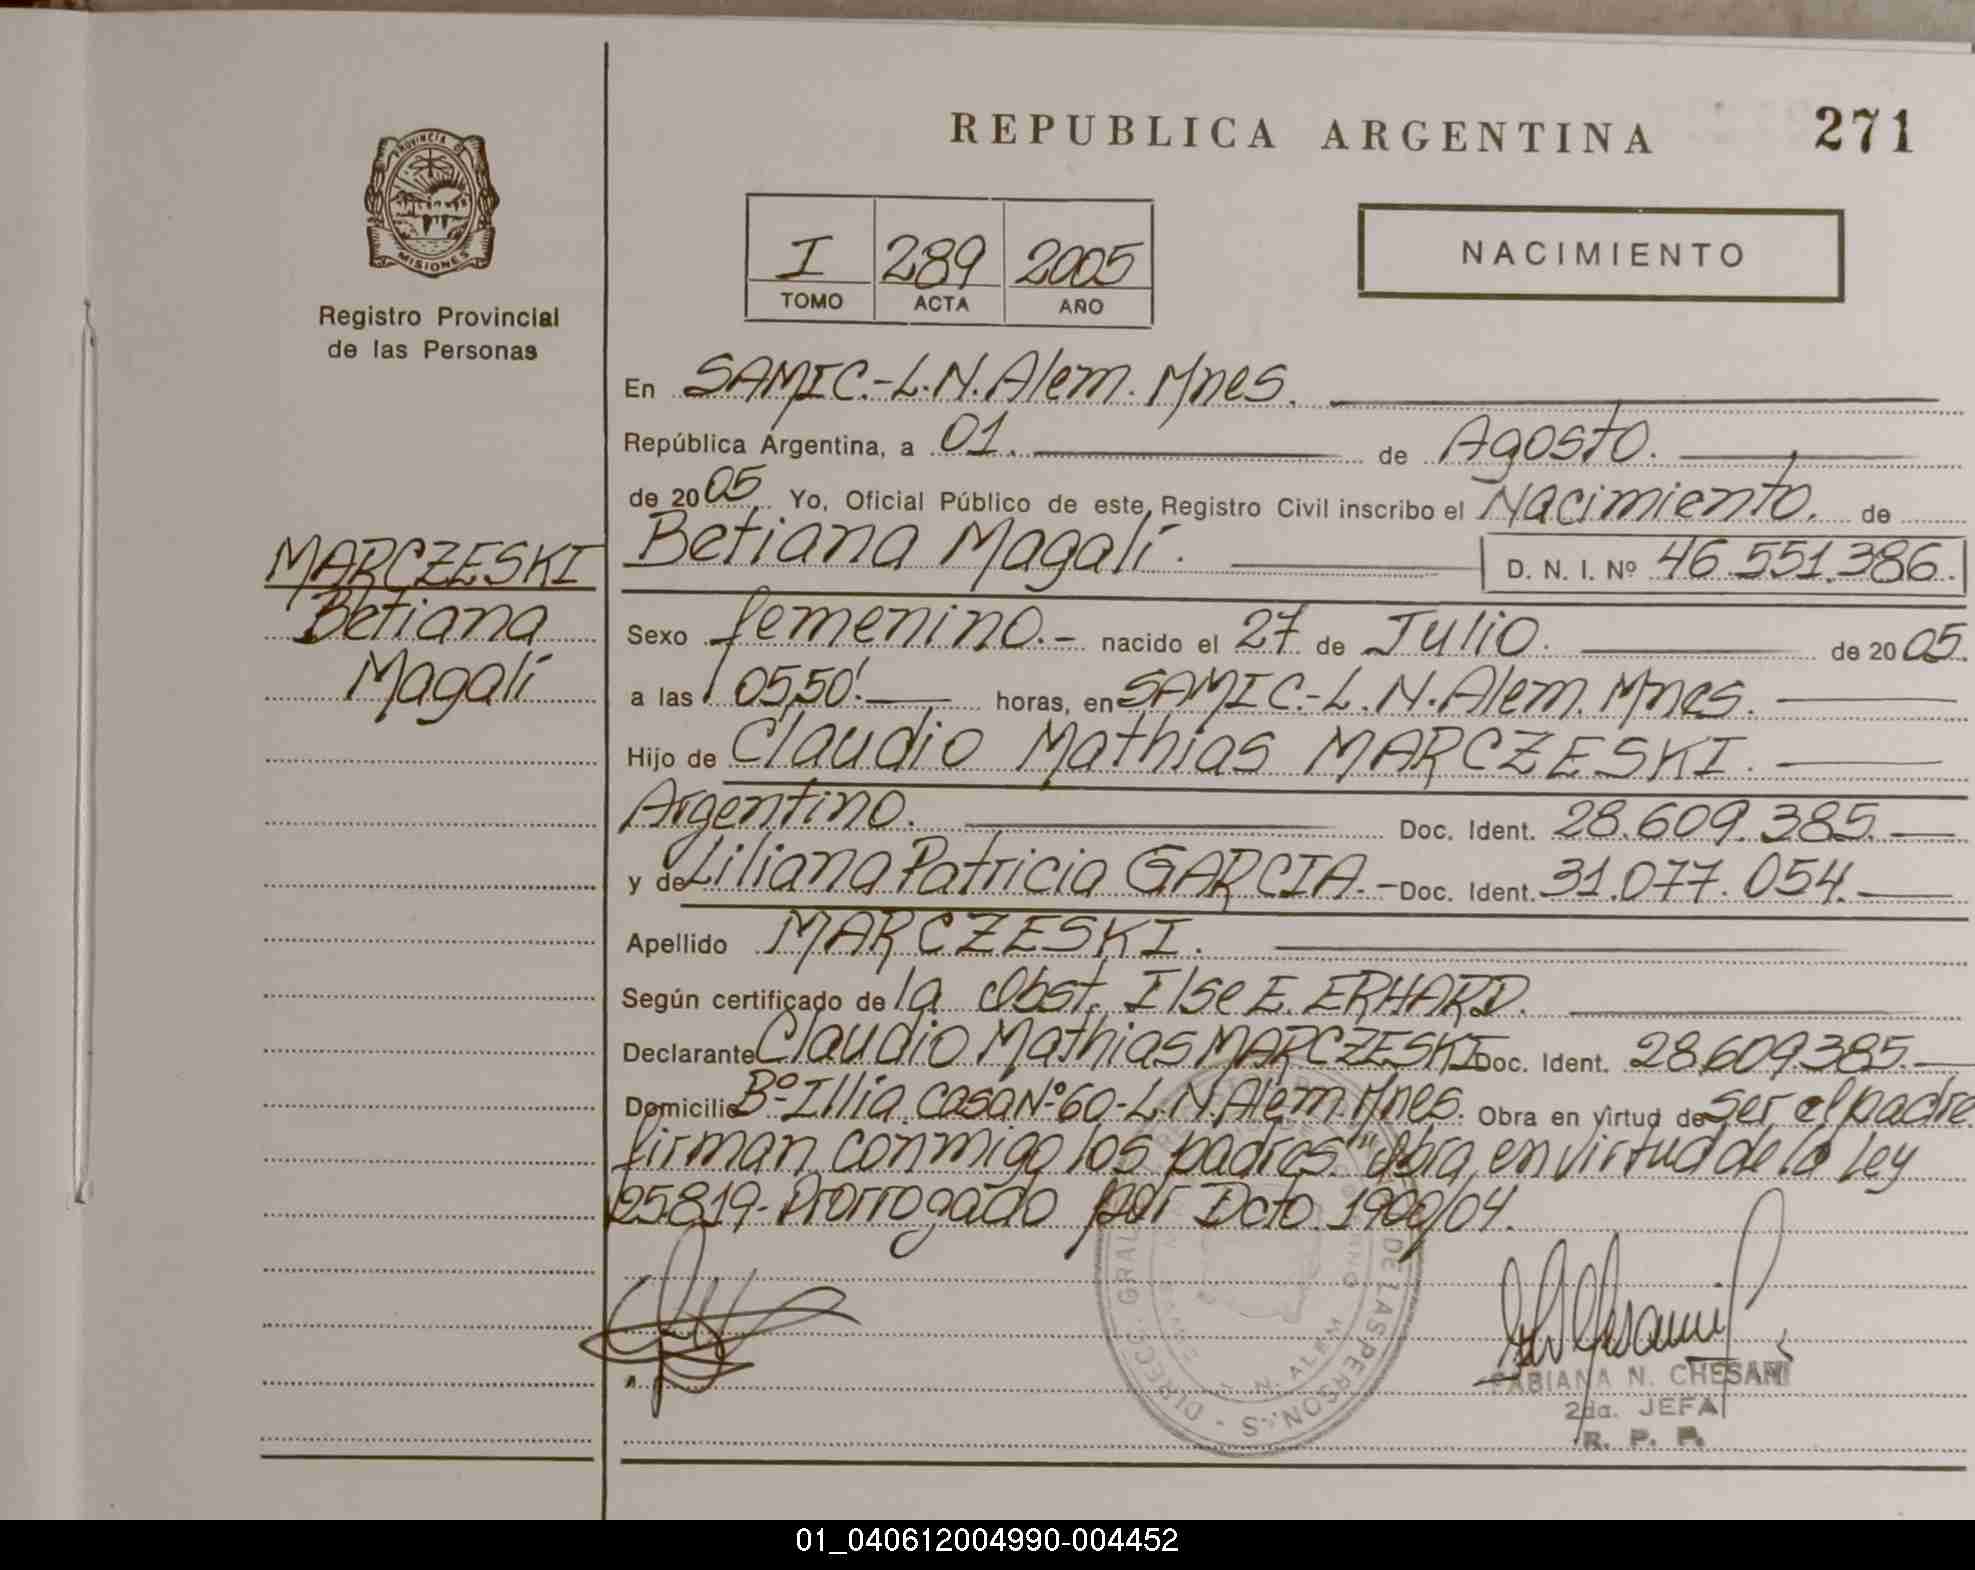 REPUBLICA ARGENTINA
271
PROVINCIA DE
MISIONES
Registro Provincial
de las Personas
I 289 2005
TOMO ACTA AÑO
NACIMIENTO
En SAMIC.-L.N.Alem. Mnes.
República Argentina, a 01. de Agosto.
de 2005 Yo, Oficial Público de este Registro Civil inscribo el Nacimiento. de
Betiana Magalí. D. N. I. Nº 46.551.386.
MARCZESKI
Betiana
Magalí
Sexo femenino.- nacido el 27 de Julio. de 2005.
a las 05,50'. horas, en SAMIC.-L.N.Alem. Mnes.
Hijo de Claudio Mathias MARCZESKI.
Argentino. Doc. Ident. 28.609.385.
y de Liliana Patricia GARCIA.- Doc. Ident. 31.077.054.
Apellido MARCZESKI.
Según certificado de la Obst. Ilse E. ERHARD.
Declarante Claudio Mathias MARCZESKI Doc. Ident. 28.609.385.
Domicilio Bº Illia casa Nº 60-L.N.Alem. Mnes. Obra en virtud de ser el padre.
firman conmigo los padres." Obra en virtud de la Ley
25819- Prorrogado por Dcto 1900/04.
DIREC. GRAL. DE LAS PERSONAS
N. ALEM
FABIANA N. CHESANI
2da. JEFA
R. P. P.
01_040612004990-004452